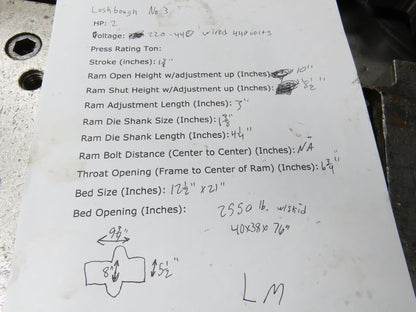 Loshbough No 3
HP: 2
Voltage: 220-440 wired 440 volts
Press Rating Ton:
Stroke (inches): 1 3/4"
Ram Open Height w/adjustment up (Inches): 10"
Ram Shut Height w/adjustment up (Inches): 8 1/2"
Ram Adjustment Length (Inches): 3"
Ram Die Shank Size (Inches):
Ram Die Shank Length (Inches): 4 1/4
Ram Bolt Distance (Center to Center) (Inches): NA
Throat Opening (Frame to Center of Ram) (Inches): 6 3/4"
Bed Size (Inches): 12 1/2" x 21"
Bed Opening (Inches):
2550 lb. w/skid
40x38x76"
9 3/4"
8"
5 1/2"
LM